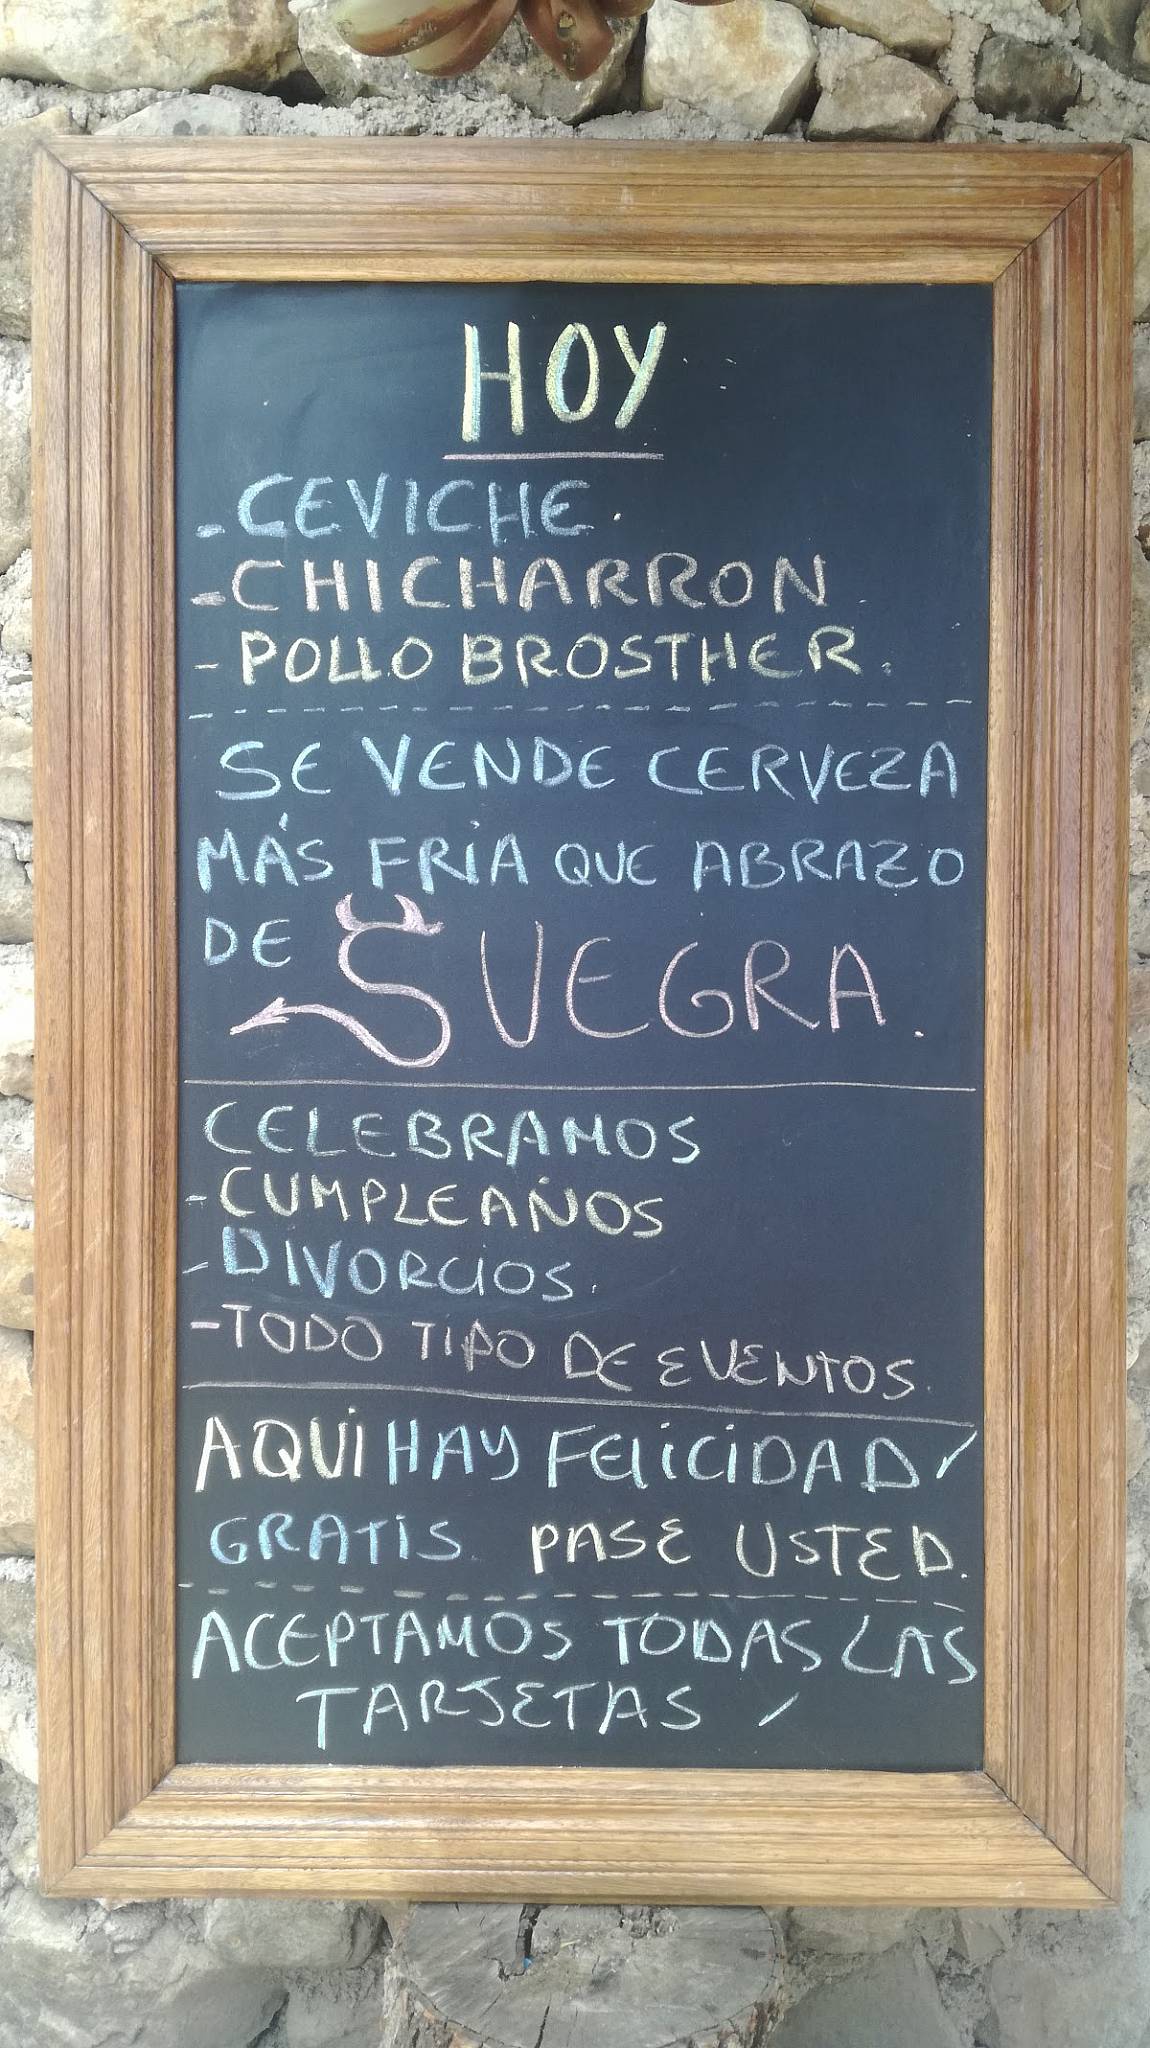 HOY
-CEVICHE.
-CHICHARRON.
- POLLO BROSTHER.
SE VENDE CERVEZA
MÁS FRIA QUE ABRAZO
DE SUEGRA.
CELEBRAMOS
-CUMPLEAÑOS
-DIVORCIOS.
-TODO TIPO DE EVENTOS.
AQUI HAY FELICIDAD
GRATIS. PASE USTED.
ACEPTAMOS TODAS LAS
TARJETAS